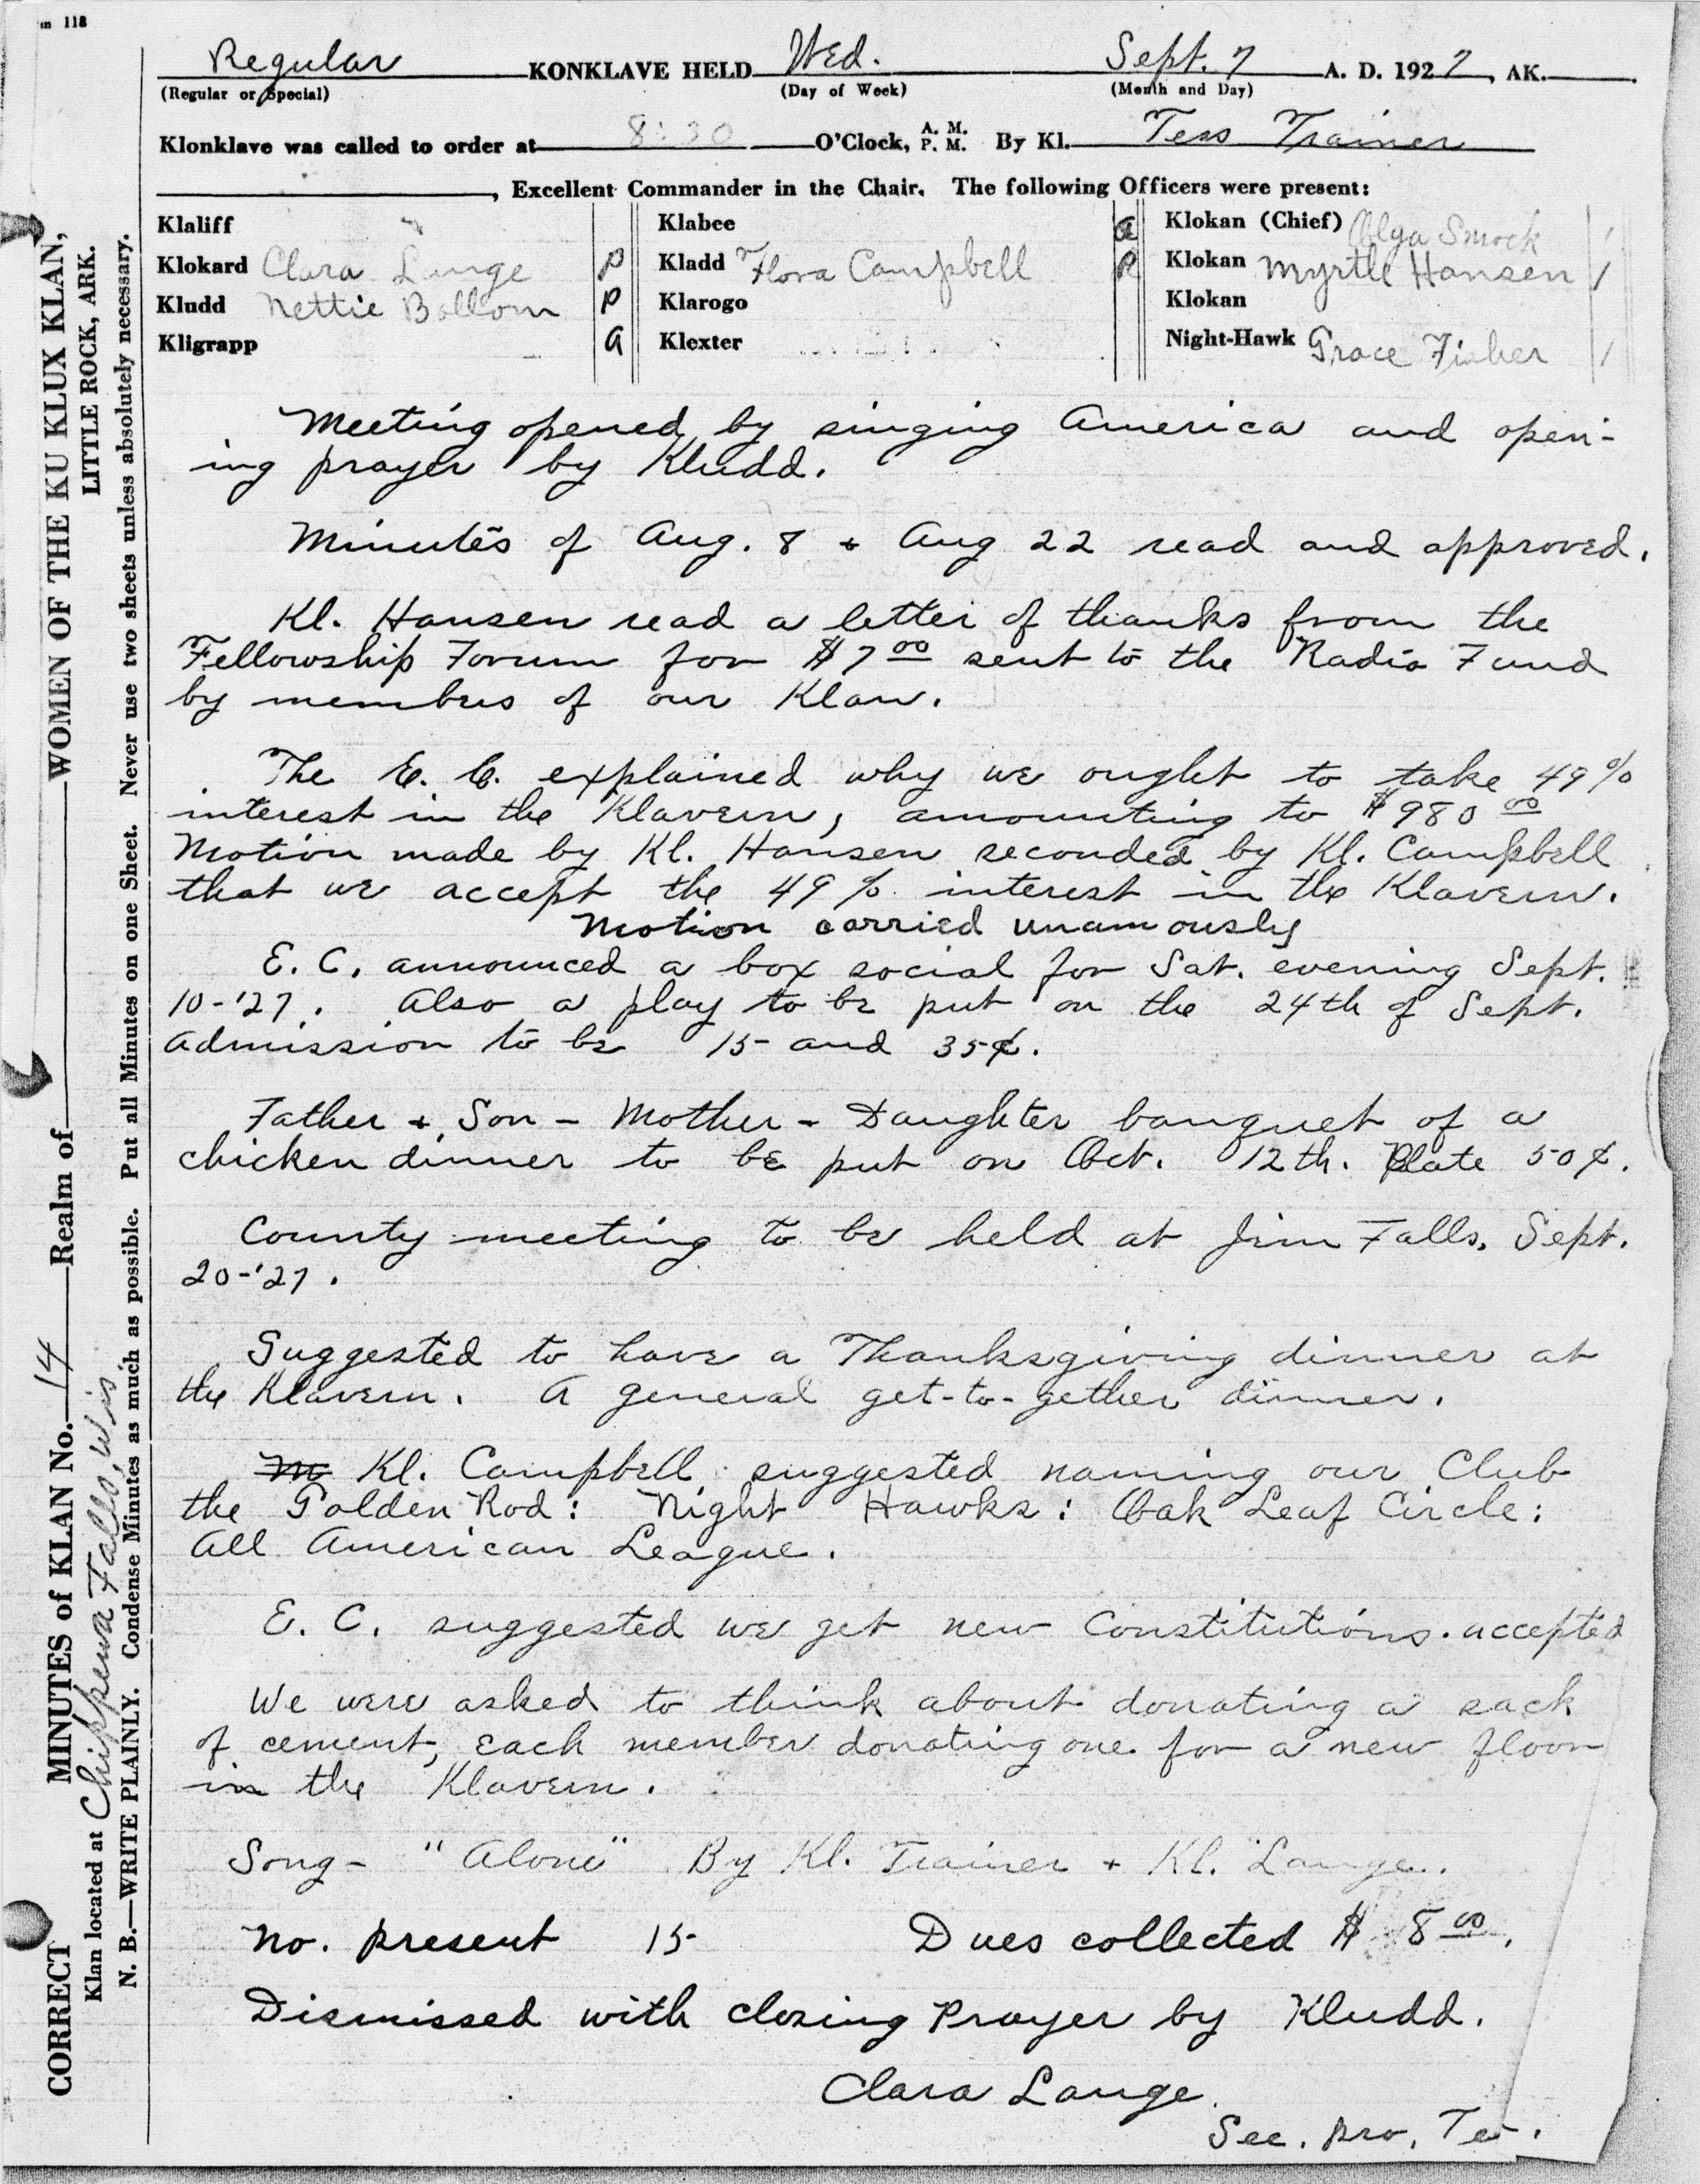 m 118
Regular KONKLAVE HELD Wed. Sept. 7 A. D. 1927, AK.
(Regular or Special) (Day of Week) (Month and Day)
Klonklave was called to order at 8:30 O'Clock, A. M. P. M. By Kl. Tess Trainer
, Excellent Commander in the Chair. The following Officers were present:
Klaliff Klabee a Klokan (Chief) Olga Smock /
Klokard Clara Lange P Kladd Flora Campbell P Klokan Myrtle Hansen /
Kludd Nettie Bollom P Klarogo Klokan
Kligrapp a Klexter Night-Hawk Grace Fisher /
Meeting opened by singing America and open-
ing prayer by Kludd.
Minutes of Aug. 8 + Aug 22 read and approved.
Kl. Hansen read a letter of thanks from the
Fellowship Forum for $7 00 sent to the Radio Fund
by members of our Klan.
The E. C. explained why we ought to take 49%
interest in the Klavern, amounting to $980 00
Motion made by Kl. Hansen seconded by Kl. Campbell
that we accept the 49% interest in the Klavern.
Motion carried unamously
E. C. announced a box social for Sat. evening Sept.
10-'27. Also a play to be put on the 24th of Sept.
Admission to be 15 and 35¢.
Father + Son - Mother - Daughter banquet of a
chicken dinner to be put on Oct. 12th. Plate 50¢.
County meeting to be held at Jim Falls, Sept.
20-'27.
Suggested to have a Thanksgiving dinner at
the Klavern. A general get-to-gether dinner.
M Kl. Campbell suggested naming our Club
the Golden Rod: Night Hawks: Oak Leaf Circle:
All American League.
E. C. suggested we get new Constitutions. accepted
We were asked to think about donating a sack
of cement, each member donating one for a new floor
in the Klavern.
Song- "Alone" By Kl. Trainer + Kl. Lange.
No. present 15 Dues collected $ 8 00.
Dismissed with closing Prayer by Kludd.
Clara Lange
Sec. Pro. Te.
CORRECT MINUTES of KLAN No. 14 Realm of WOMEN OF THE KU KLUX KLAN,
Klan located at Chippewa Falls, Wis LITTLE ROCK, ARK.
N. B.—WRITE PLAINLY. Condense Minutes as much as possible. Put all Minutes on one Sheet. Never use two sheets unless absolutely necessary.